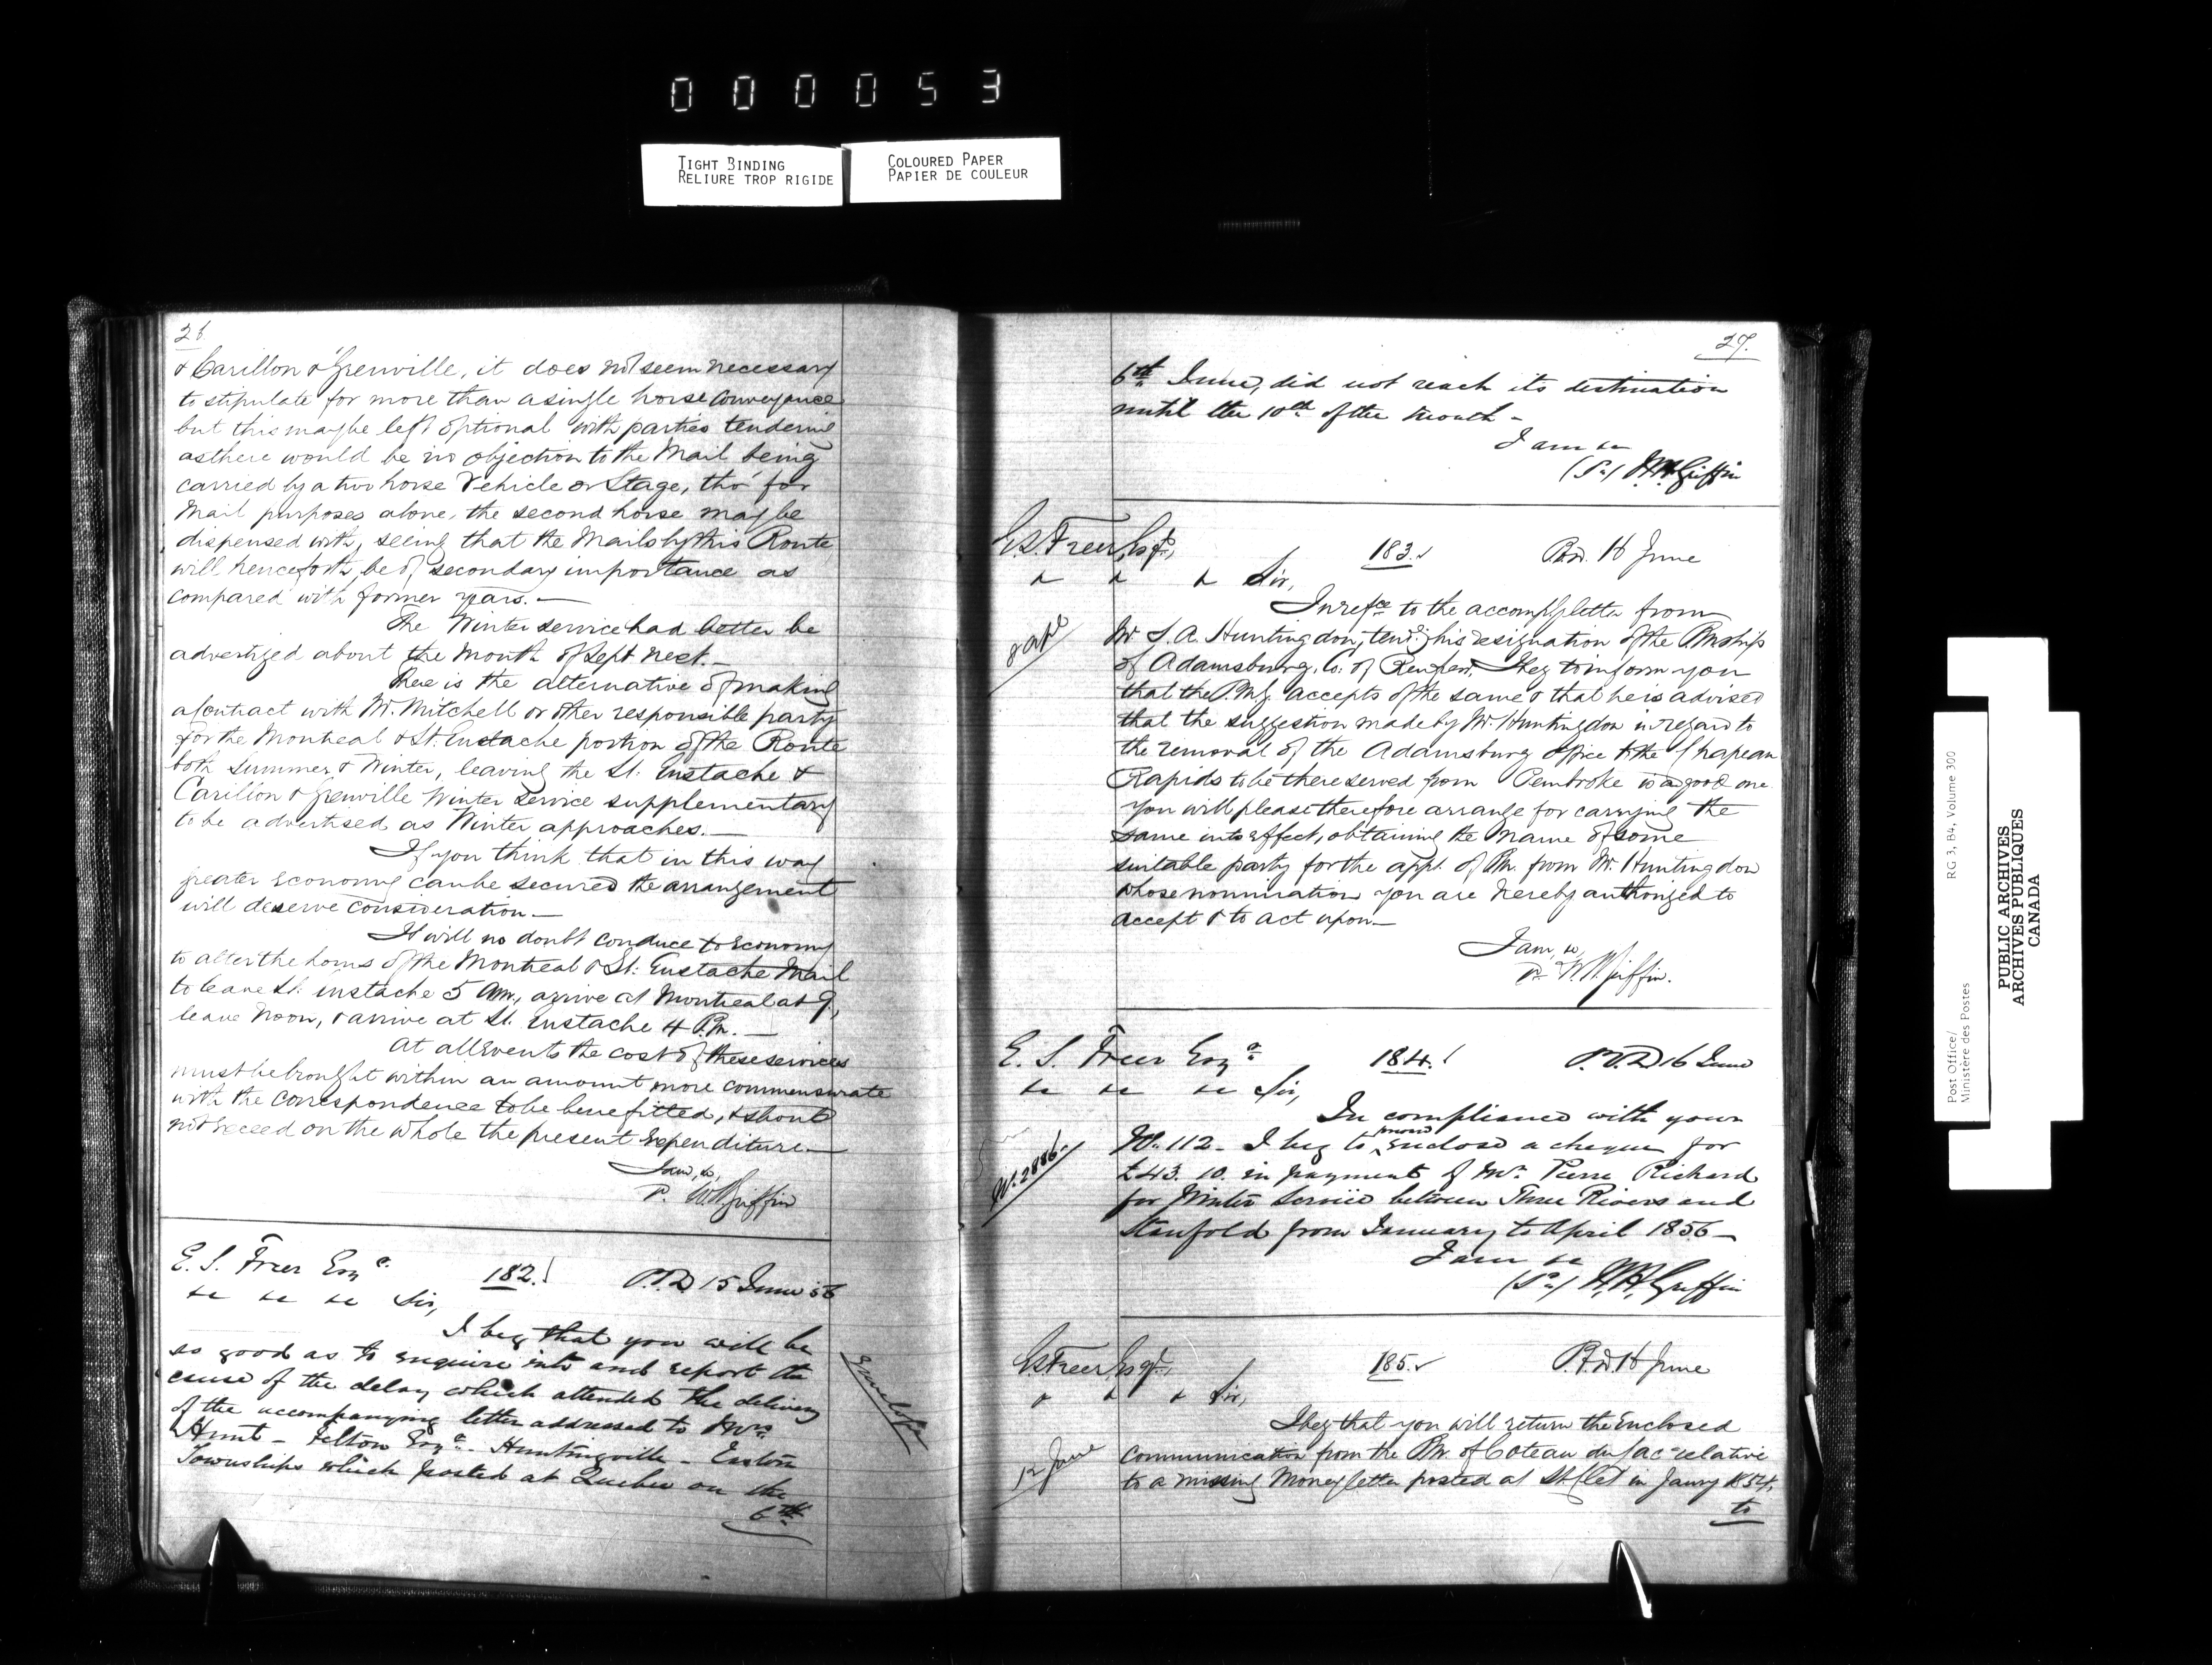 0 0 0 0 5 3
TIGHT BINDING
RELIURE TROP RIGIDE
COLOURED PAPER
PAPIER DE COULEUR
26
& Carillon & Grenville, it does not seem necessary
to stipulate for more than a single horse conveyance
but this may be left optional with parties tendering
as there would be no objection to the Mail being
carried by a two horse Vehicle or Stage, tho' for
Mail purposes alone, the second horse may be
dispensed with, seeing that the Mails by this Route
will henceforth, be of secondary importance as
compared with former years. —
The Winter service had better be
advertized about the Month of Sept next. —
There is the alternative of making
a Contract with Mr. Mitchell or other responsible party
for the Montreal & St. Eustache portion of the Route
both Summer & Winter, leaving the St. Eustache &
Carillon & Grenville Winter Service supplementary
to be advertised as Winter approaches. —
If you think that in this way
greater economy can be secured the arrangement
will deserve consideration —
It will no doubt conduce to economy
to alter the hours of the Montreal & St. Eustache Mail
to leave St. Eustache 5 Am., arrive at Montreal at 9,
leave Noon, & arrive at St. Eustache 4 P.m. —
At all events the cost of these services
must be brought within an amount more commensurate
with the correspondence to be benefitted, & should
not exceed on the whole the present Expenditure —
I am, &c,
W.H. Griffin
E. S. Freer Esqr.
182.
P.O.D 15 June 56
&c &c &c Sir,
I beg that you will be
so good as to enquire into and report the
cause of the delay which attended the delivery
of the accompanying letter addressed to Mrs.
Hunt - Felton Esqr. - Huntingville - Eastern
Townships which posted at Quebec on the
6th
27.
6th June, did not reach its destination
until the 10th of the Month -
I am &c
W.H. Griffin
E.S. Freer, Esqr.,
183.
P.O.D. 16 June
& & & Sir,
In refce to the accompg letter from
Mr S. A. Huntingdon, tendg his resignation of the P.mship
of Adamsburg, Co. of Renfrew, I beg to inform you
that the P.M.G. accepts of the same & that he is advised
that the suggestion made by Mr. Huntingdon in regard to
the removal of the Adamsburg office to the Chapeau
Rapids to be there served from Pembroke is a good one.
You will please therefore arrange for carrying the
same into effect, obtaining the Name of some
suitable party for the appt. of P.m. from Mr. Huntingdon
whose nomination you are hereby authorized to
accept & to act upon —
I am, &c,
W.H. Griffin.
E. S. Freer Esqr
184.
P.O.D 16 June
&c &c &c Sir,
In compliance with your
No. 112 - I beg to enclose a cheque for
£43. 10. in payment of Mr. Pierre Richard
for Winter Service between Three Rivers and
Stanfold from January to April 1856 —
I am &c
W.H. Griffin
N. 2886.
E.S. Freer Esqr.,
185.
P.O.D. 16 June
& & & Sir,
I beg that you will return the Enclosed
12 June
communication from the P.m. of Coteau du Lac relative
to a missing Money letter posted at St. Clet in Janry 1854,
to
Post Office/
Ministère des Postes
RG 3, B4, Volume 300
PUBLIC ARCHIVES
ARCHIVES PUBLIQUES
CANADA